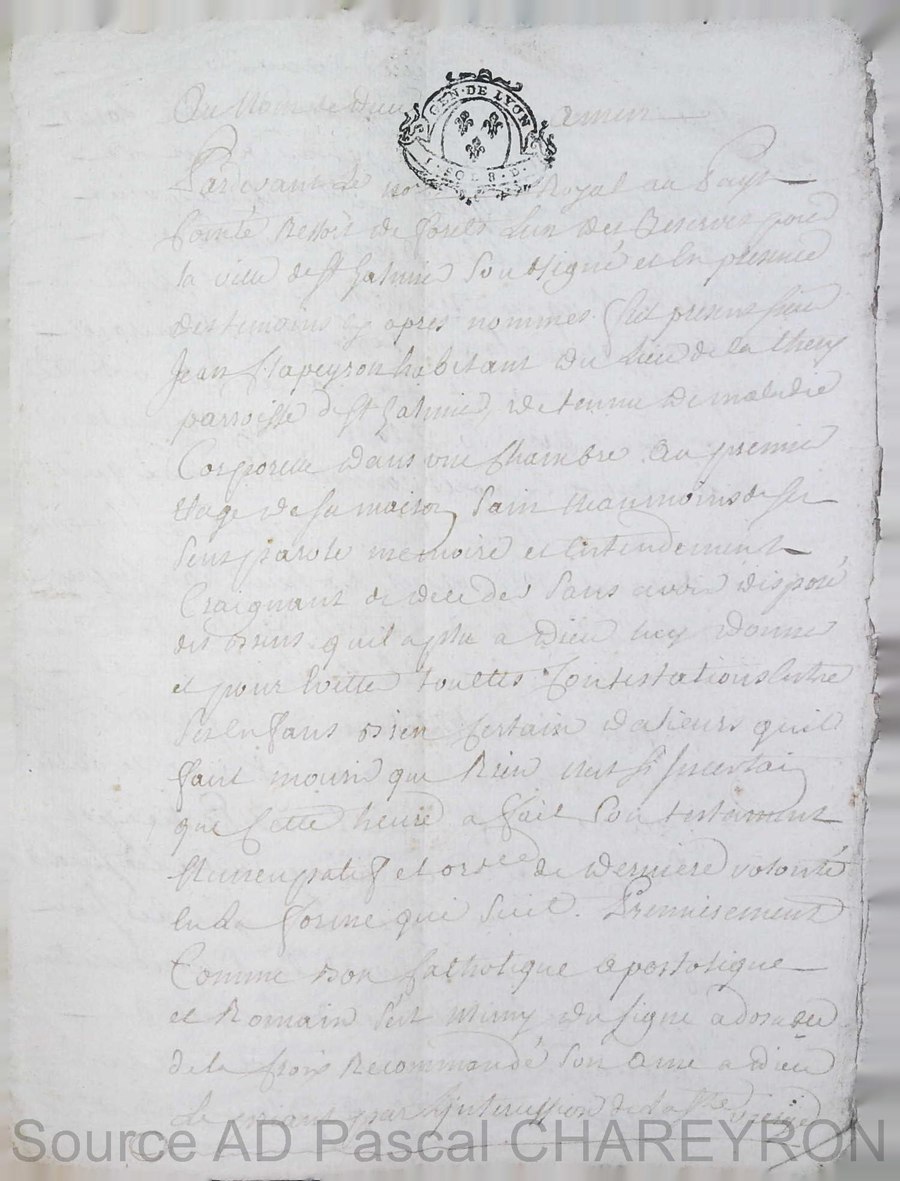 Au Nom de Dieu amen
GEN · DE LYON
1 · SOL 8 · D ·
Pardevant le no Royal au Pays
Comté Ressort de forest L'un des Reservés pour
la ville de St Galmier Soussigné et En presence
des temoins cy apres nommés fut present sieur
Jean Chapeyron habitant du Lieu de la
parroisse de St Galmier, detenue de maladie
Corporelle dans une Chambre Au premier
Etage de sa maison Sain neanmoins de ses
Sens parole memoire et Entendement
Craignant de deceder Sans avoir disposé
des biens quil a plu a Dieu luy donner
et pour Eviter touttes Contestations Entre
ses Enfans bien Certain dalieurs quil
faut mourir que Rien nest si Incertain
que Cette heure a fait Son testament
Nuncupatif et ord.ce de derniere volonté
En la forme qui Suit. Premierement
Comme bon Catholique apostolique
et Romain sest muny du signe adorable
de la Croix Recommandé Son ame a Dieu
Le priant par L'intercession de la Ste Vierge
Source AD Pascal CHAREYRON